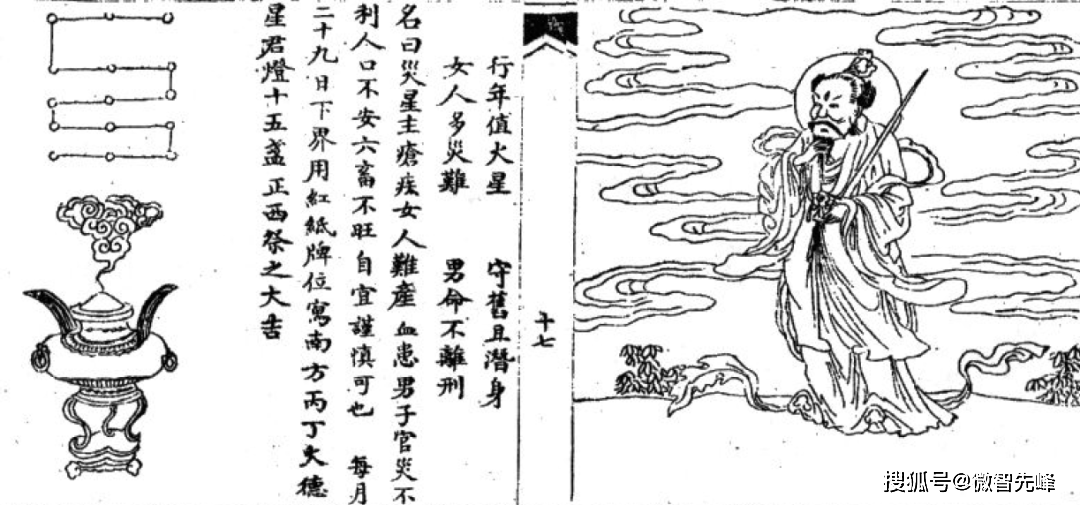 十七
行年值火星 守舊且潛身
女人多災難 男命不離刑
名曰災星主瘡疾女人難產血患男子官災不
利人口不安六畜不旺自宜謹慎可也 每月
二十九日下界用紅紙牌位寫南方丙丁火德
星君燈十五盞正西祭之大吉
搜狐号@微智先峰